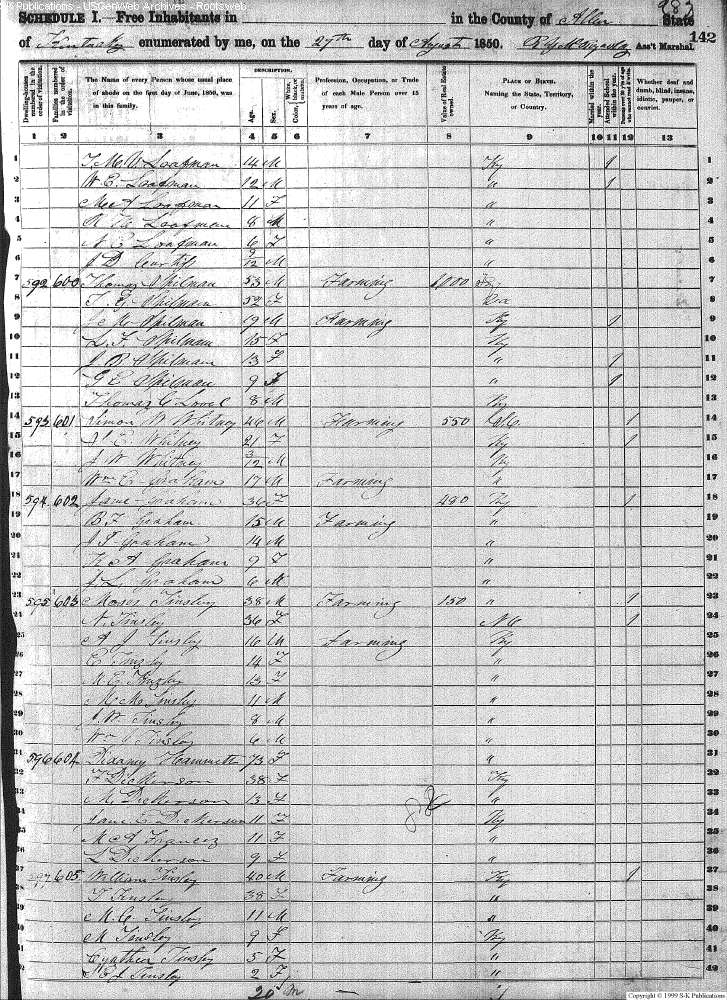 S-K Publications - USGenWeb Archives - Rootsweb
983
SCHEDULE I.—Free Inhabitants in in the County of Allen State
of Kentucky enumerated by me, on the 27th day of August 1850. Ass't Marshal. 142
Dwelling-houses numbered in the order of visitation.
Families numbered in the order of visitation.
The Name of every Person whose usual place of abode on the first day of June, 1850, was in this family.
DESCRIPTION.
Age.
Sex.
Color, White, black, or mulatto.
Profession, Occupation, or Trade of each Male Person over 15 years of age.
Value of Real Estate owned.
PLACE OF BIRTH. Naming the State, Territory, or Country.
Married within the year.
Attended School within the year.
Whether deaf and dumb, blind, insane, idiotic, pauper, or convict.
1 2 3 4 5 6 7 8 9 10 11 12 13
1 T M W Loafman 14 M Ky 1 1
2 W E Loafman 12 M " 1 2
3 M A Loafman 11 F " 3
4 Loafman 8 M " 4
5 A E Loafman 6 F " 5
6 J D 9/12 M " 6
7 592 600 Thomas Spilman 53 M Farming 1000 7
8 Spilman 52 F 8
9 Spilman 19 M Farming Ky 1 9
10 L. F. Spilman 15 F Ky 10
11 Spilman 13 F " 1 11
12 G E Spilman 9 F " 1 12
13 Thomas C Lovel 8 M Ky 13
14 593 601 Simon W Whitney 46 M Farming 550 1 14
15 Whitney 21 F Ky 1 15
16 J W Whitney 3/12 M Ky 16
17 Wm C Graham 17 M Farming " 17
18 594 602 Jane Graham 36 F 480 Ky 1 18
19 B F Graham 15 M Farming " 19
20 Graham 14 M " 20
21 Graham 9 F " 21
22 Graham 6 M " 22
23 595 603 Moses Tinsley 38 M Farming 150 " 1 23
24 A. Tinsley 36 F NC 1 24
25 A J Tinsley 16 M Farming Ky 25
26 E Tinsley 14 F " 26
27 M E Tinsley 13 F " 27
28 Tinsley 11 M " 28
29 J W Tinsley 8 M " 29
30 Wm Tinsley 6 M " 30
31 596 604 Hammett 73 F " 31
32 F Dickerson 38 F Ky 32
33 M Dickerson 13 F " 33
34 Jane E Dickerson 11 F Ky 34
35 M A 11 F " 35
36 L Dickerson 9 F " 36
37 597 605 William Tinsley 40 M Farming Ky 1 37
38 T Tinsley 38 F " 38
39 M. C. Tinsley 11 M " 39
40 M Tinsley 9 F Ky 40
41 Cynthia Tinsley 5 F " 41
42 Tinsley 2 F " 42
20 M
Copyright © 1999 S-K Publications